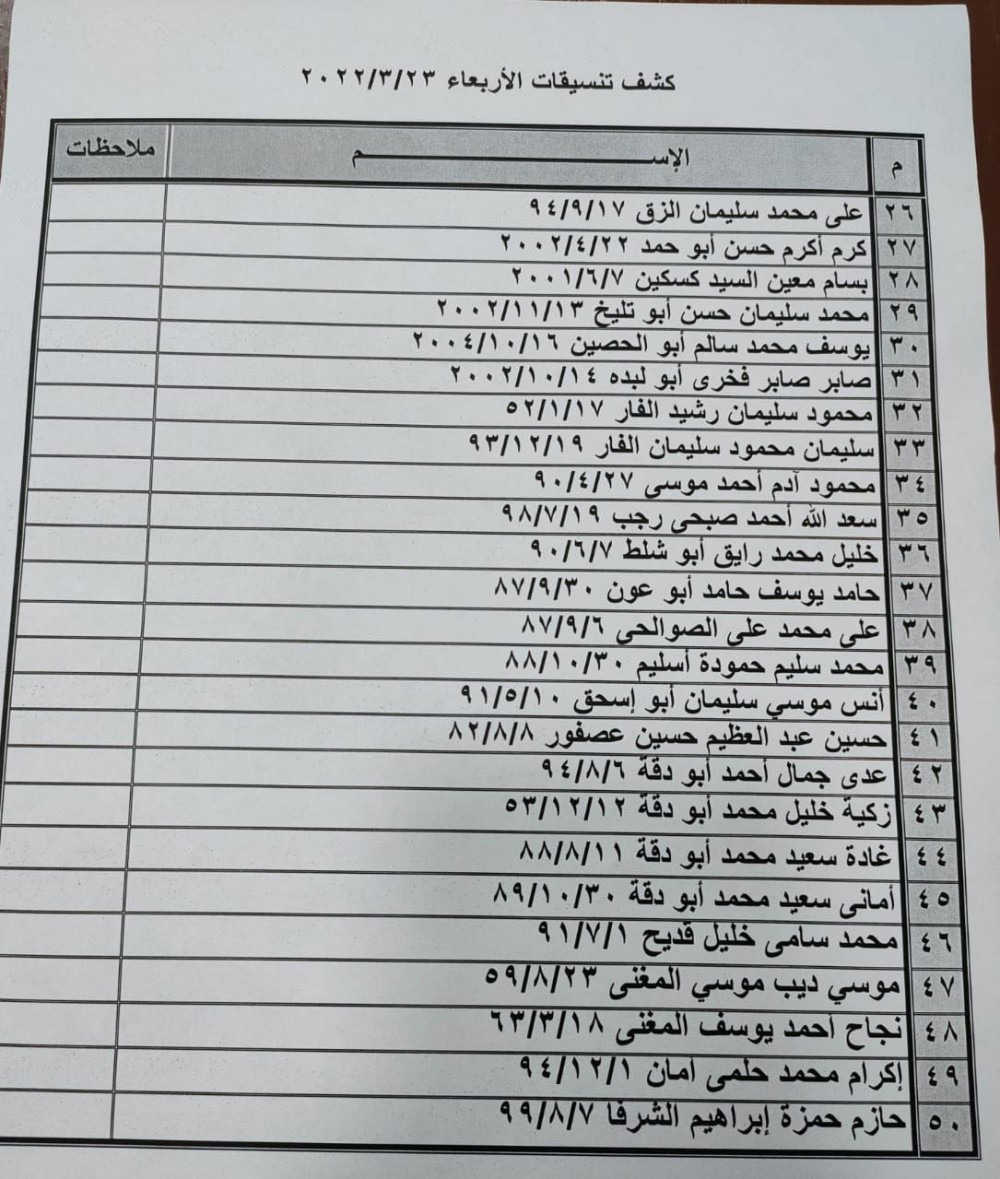 كشف تنسيقات الأربعاء ٢٠٢٢/٣/٢٣
م الإســـــــم ملاحظات
٢٦ على محمد سليمان الزق ٩٤/٩/١٧
٢٧ كرم أكرم حسن أبو حمد ٢٠٠٢/٤/٢٢
٢٨ بسام معين السيد كسكين ٢٠٠١/٦/٧
٢٩ محمد سليمان حسن أبو تليخ ٢٠٠٢/١١/١٣
٣٠ يوسف محمد سالم أبو الحصين ٢٠٠٤/١٠/١٦
٣١ صابر صابر فخرى أبو لبده ٢٠٠٢/١٠/١٤
٣٢ محمود سليمان رشيد الفار ٥٢/١/١٧
٣٣ سليمان محمود سليمان الفار ٩٣/١٢/١٩
٣٤ محمود آدم أحمد موسى ٩٠/٤/٢٧
٣٥ سعد الله أحمد صبحى رجب ٩٨/٧/١٩
٣٦ خليل محمد رايق أبو شلط ٩٠/٦/٧
٣٧ حامد يوسف حامد أبو عون ٨٧/٩/٣٠
٣٨ على محمد على الصوالحى ٨٧/٩/٦
٣٩ محمد سليم حمودة أسليم ٨٨/١٠/٣٠
٤٠ أنس موسي سليمان أبو إسحق ٩١/٥/١٠
٤١ حسين عبد العظيم حسين عصفور ٨٢/٨/٨
٤٢ عدى جمال أحمد أبو دقة ٩٤/٨/٦
٤٣ زكية خليل محمد أبو دقة ٥٣/١٢/١٢
٤٤ غادة سعيد محمد أبو دقة ٨٨/٨/١١
٤٥ أمانى سعيد محمد أبو دقة ٨٩/١٠/٣٠
٤٦ محمد سامى خليل قديح ٩١/٧/١
٤٧ موسي ديب موسي المغنى ٥٩/٨/٢٣
٤٨ نجاح أحمد يوسف المغنى ٦٣/٣/١٨
٤٩ إكرام محمد حلمى أمان ٩٤/١٢/١
٥٠ حازم حمزة إبراهيم الشرفا ٩٩/٨/٧